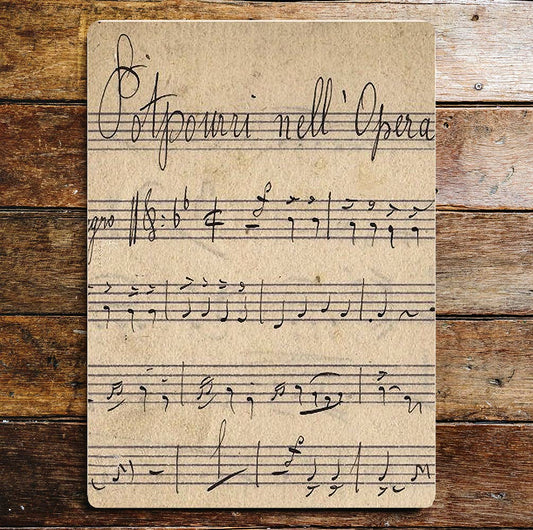 Potpourri nell' Opera
gno
f
f
f